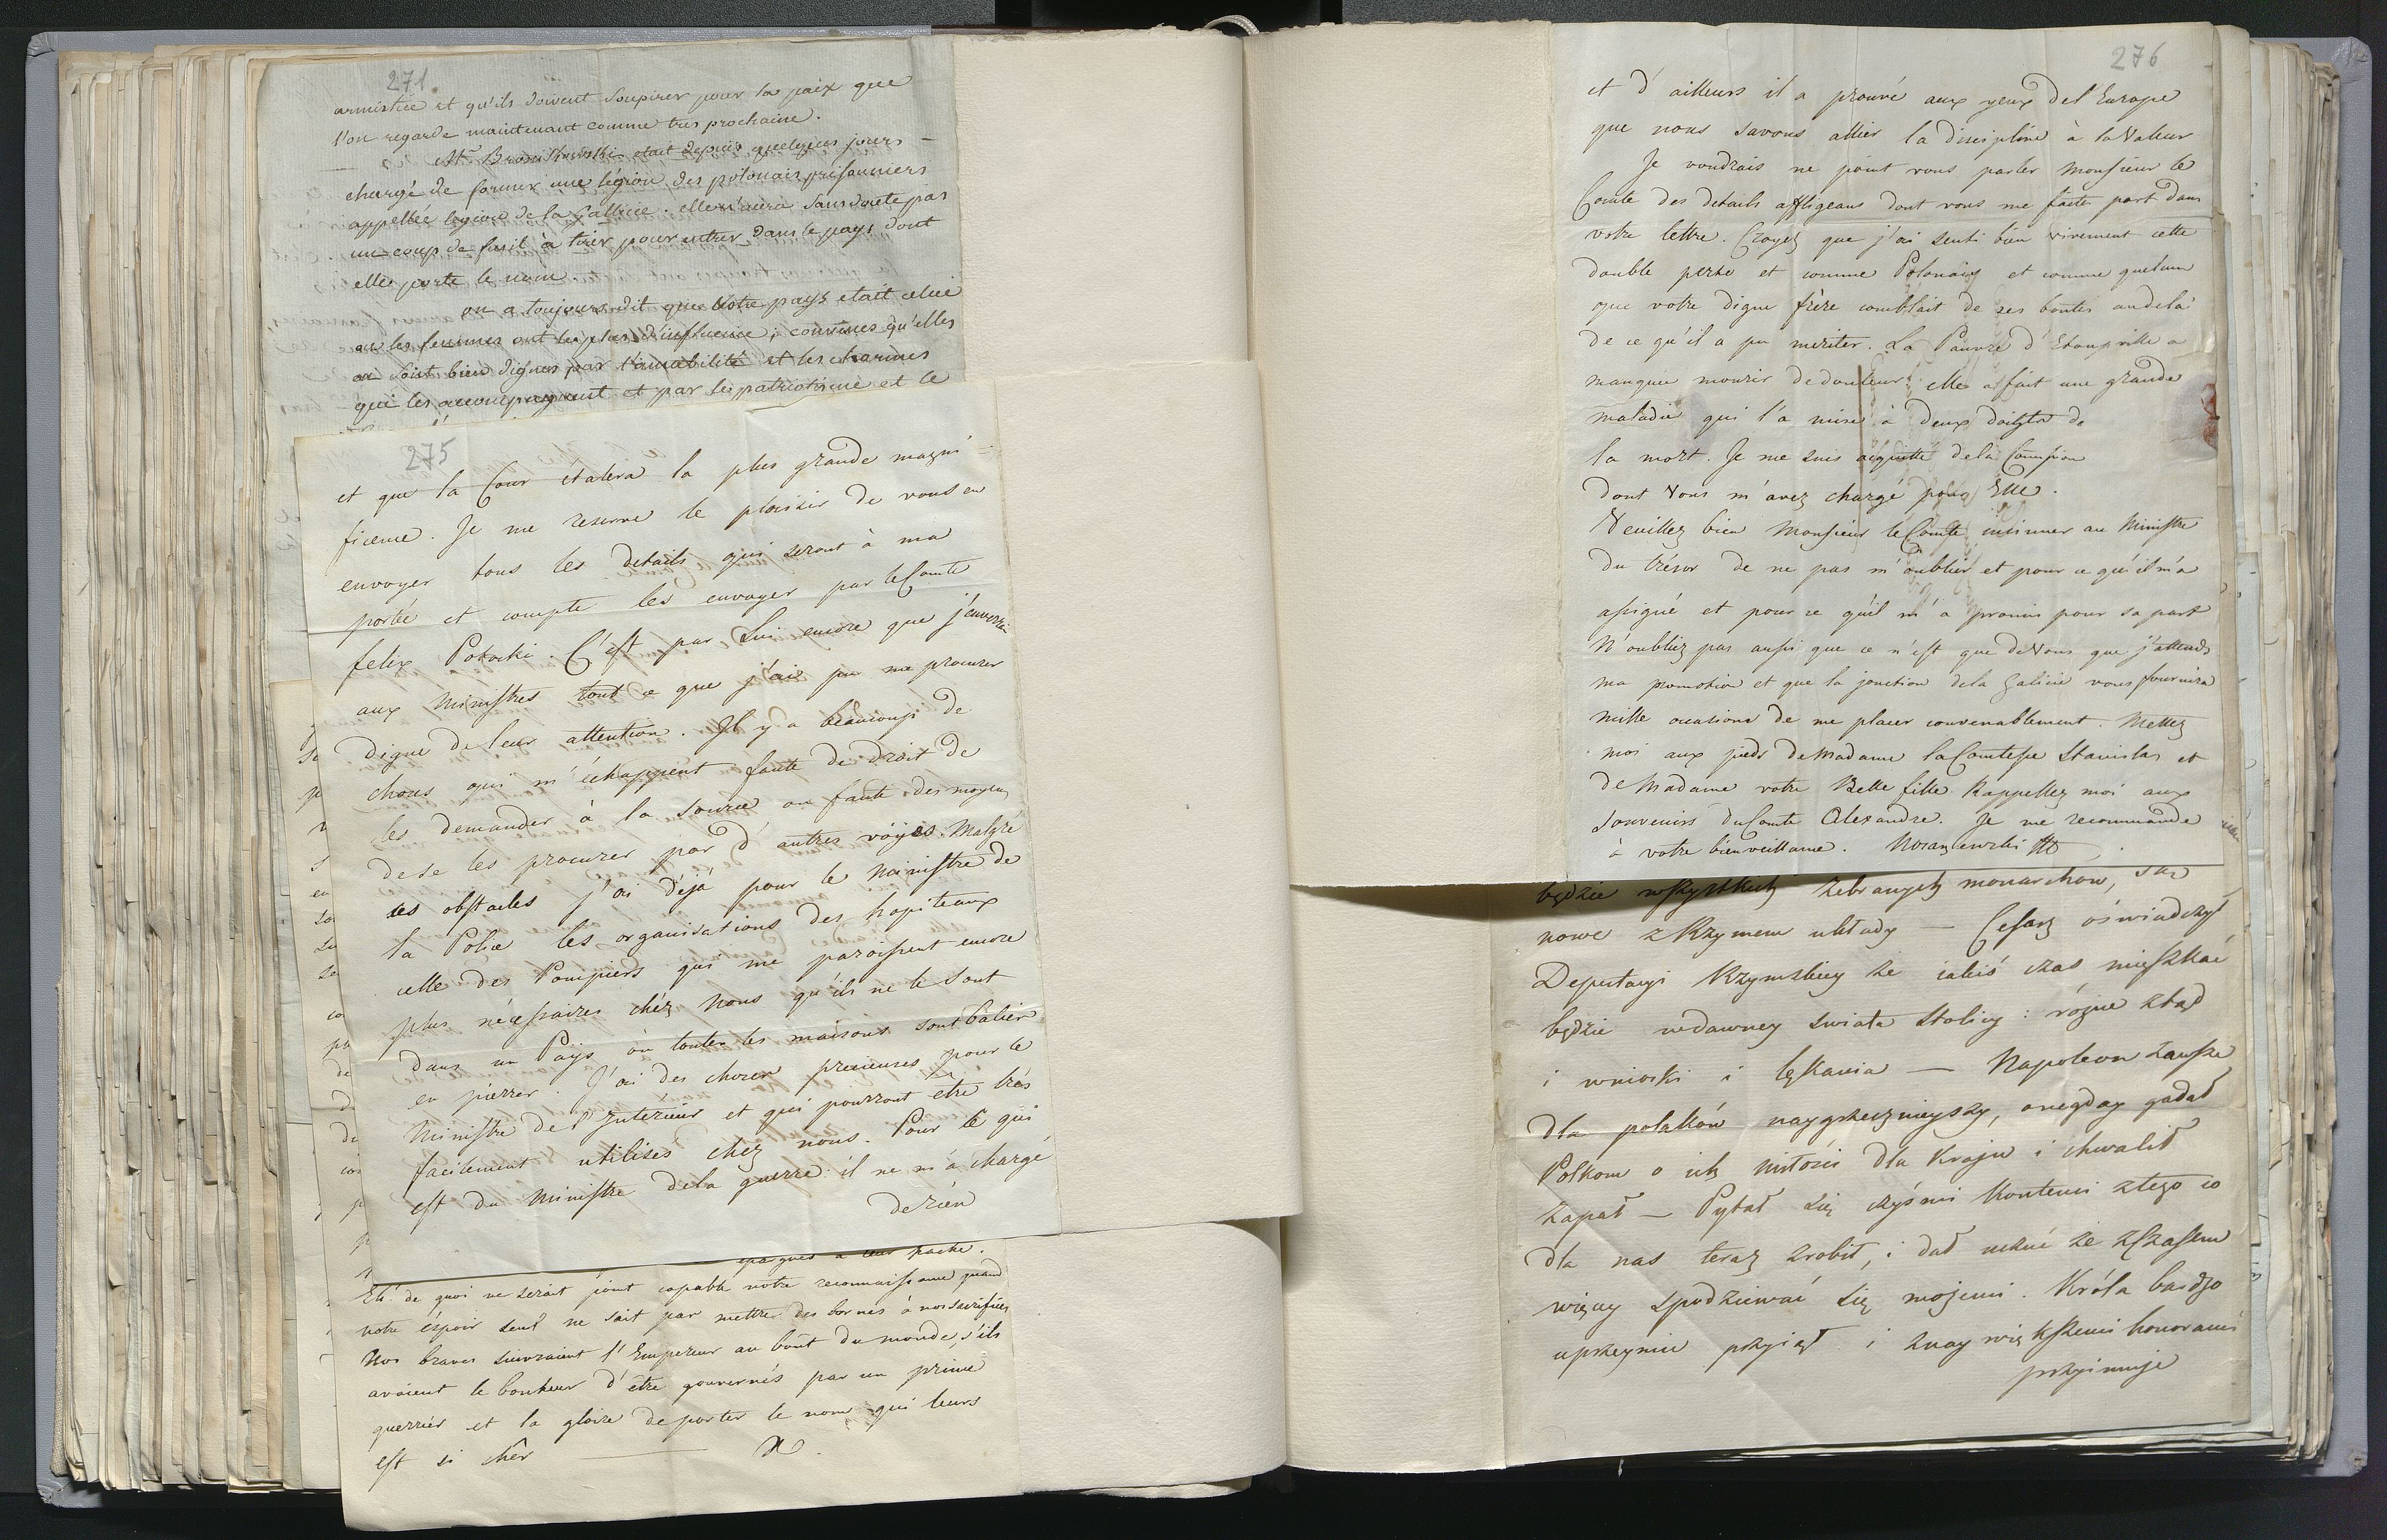 271
armistice et qu'ils doivent soupirer pour la paix que
l'on regarde maintenant comme tres prochaine.
Mr. Bronikowski etait depuis quelques jours
chargé de former une légion des polonais prisonniers
appellée legion de la Gallicie. elle n'aura sans doute pas
un coup de fusil à tirer pour entrer dans le pays dont
elle porte le nom.
on a toujours dit que Votre pays etait celui
ou les femmes ont le plus d'influence; convenes qu'elles
en sont bien dignes par l'amabilité et les charmes
qui les accompagnent et par le patriotisme et le
275
et que la Cour étalera la plus grande magni-
ficence. Je me reserve le plaisir de vous en
envoyer tous les details qui seront à ma
portée et compte les envoyer par le Comte
felix Potocki. C'est par Lui encore que j'enverrai
aux Ministres tout ce que j'ai pu me procurer
digne de leur attention. Il y a beaucoup de
choses qui m'échappent faute de droit de
les demander à la source ou faute des moyens
de se les procurer par d'autres voyes. Malgré
ces obstacles j'ai déjà pour le Ministre de
la Police les organisations des hopiteaux
celle des Pompiers qui me paroissent encore
plus nécessaires chéz Nous qu'ils ne le sont
dans un Pays où toutes les maisons sont batier
en pierrer. J'ai des choses precieuses pour le
Ministre de l'Interieur et qui pourront etre très
facilement utilisés chez nous. Pour ce qui
est du Ministre de la guerre il ne m'a chargé
de rien
epargnes a leur hache.
Eh! de quoi ne serait point capable notre reconnaissance quand
notre éspoir seul ne sait par mettre des bornes à nos sacrifices
Nos braves suivraient l'Empereur au bout du monde, s'ils
avaient le bonheur d'être gouvernés par un prince
guerriér et la gloire de porter le nom qui leurs
est si chér
276
et d'ailleurs il a prouvé aux yeux de l'Europe
que nous savons allier la discipline à la Valeur
Je voudrais ne point vous parler Monsieur le
Comte des details affligeans dont vous me faites part dans
votre lettre. Croyez que j'ai senti bien vivement cette
double perte et comme Polonais et comme quelcun
que votre digne frère comblait de ses bontés au dela
de ce qu'il a pu meriter. La Pauvre d'Etoupville a
manquee mourir de douleur; elle a fait une grande
maladie qui l'a mise à deux doigts de
la mort. Je me suis acquitté de la Comission
dont Vous m'avez chargé pour Elle.
Veuillez bien Monsieur le Comte insinuer au Ministre
du trésor de ne pas m'oublier et pour ce qu'il m'a
assigné et pour ce qu'il m'a promis pour sa part
N'oubliez pas aussi que ce n'est que de Vous que j'attends
ma promotion et que la jonction de la Galicie vous fournira
mille occasions de me placer convenablement. Mettez
moi aux pieds de Madame la Comtesse Stanislas et
de Madame votre Belle fille Rappellez moi aux
souvenirs du Comte Alexandre. Je me recommande
à votre bienveillance.
będzie wszystkich zebranych monarchow, są
nowe z Rzymem układy — Cesarz oświadczył
Deputacyi Rzymskiey że iakiś czas mieszkać
będzie w dawney swiata stolicy: rózne ztąd
i wnioski i lękania — Napoleon zawsze
dla polaków naygrzecznieyszy, onegday gadał
Polkom o ich miłości dla Kraju i chwalił
zapał — Pytał się czyśmi kontenci z tego co
dla nas teraz zrobił, i dał uczuć że z czasem
więcey spodziewać się możemi. Króla bardzo
uprzeymie przyiął i z naywiększemi honorami
przyimuje